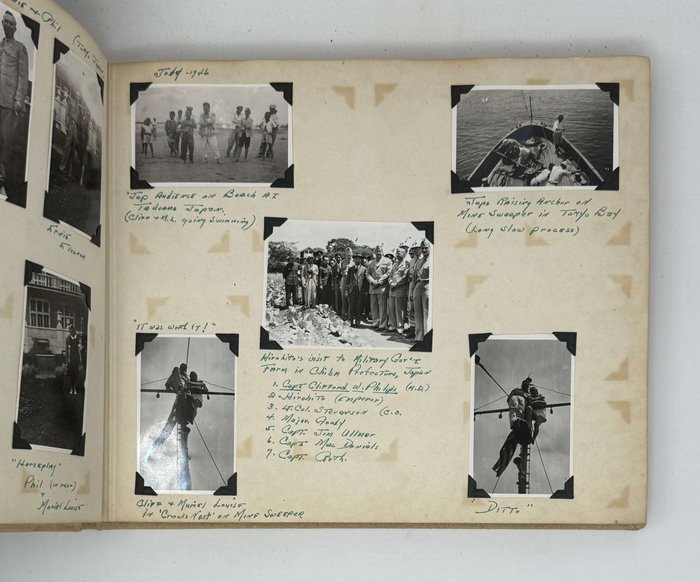 & Phil
(Tokyo Japan
Ernie
Eleanor
"Horseplay"
Phil (in rear)
+
Muriel Louise
July-1946
'Jap Audience on Beach at
Tadoana Japan.
(Cliff & M.L. going swimming)
Japs Raising Anchor on
Mine Sweeper in Tokyo Bay
(Long slow process)
Hirohito's visit to Military Gov't
Farm in Chiba Prefecture, Japan
1. Capt Clifford W. Philips (M.D.)
2. Hirohito (Emperor)
3. Lt. Col. Stevenson (C.O.
4. Major Goody
5. Capt. Jim Ullmer
6. Capt. Mac Daniels
7. Capt. Roth.
"It was worth it!"
Cliff & Muriel Louise
in 'Crow's Nest' on Mine Sweeper
"Ditto"